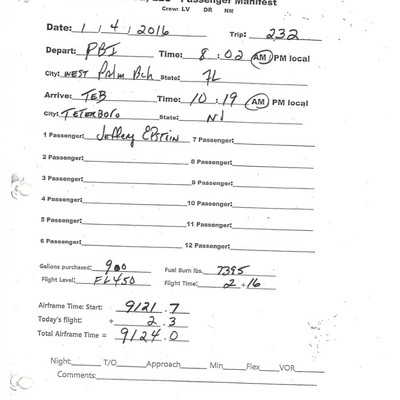 LLC - Passenger Manifest
Crew: LV DR NM
Date: 1 / 4 / 2016 Trip: 232
Depart: PBI Time: 8:02 AM/PM local
City: WEST Palm Bch State: FL
Arrive: TEB Time: 10:19 AM/PM local
City: TETERBORO State: NJ
1 Passenger: Jeffrey EPSTEIN 7 Passenger:
2 Passenger: 8 Passenger:
3 Passenger: 9 Passenger:
4 Passenger: 10 Passenger:
5 Passenger: 11 Passenger:
6 Passenger: 12 Passenger:
Gallons purchased: Fuel Burn lbs. 7395
Flight Level: FL450 Flight Time: 2+16
Airframe Time: Start: 9121.7
Today's flight: + 2.3
Total Airframe Time = 9124.0
Night: T/O Approach Min Flex VOR
Comments: